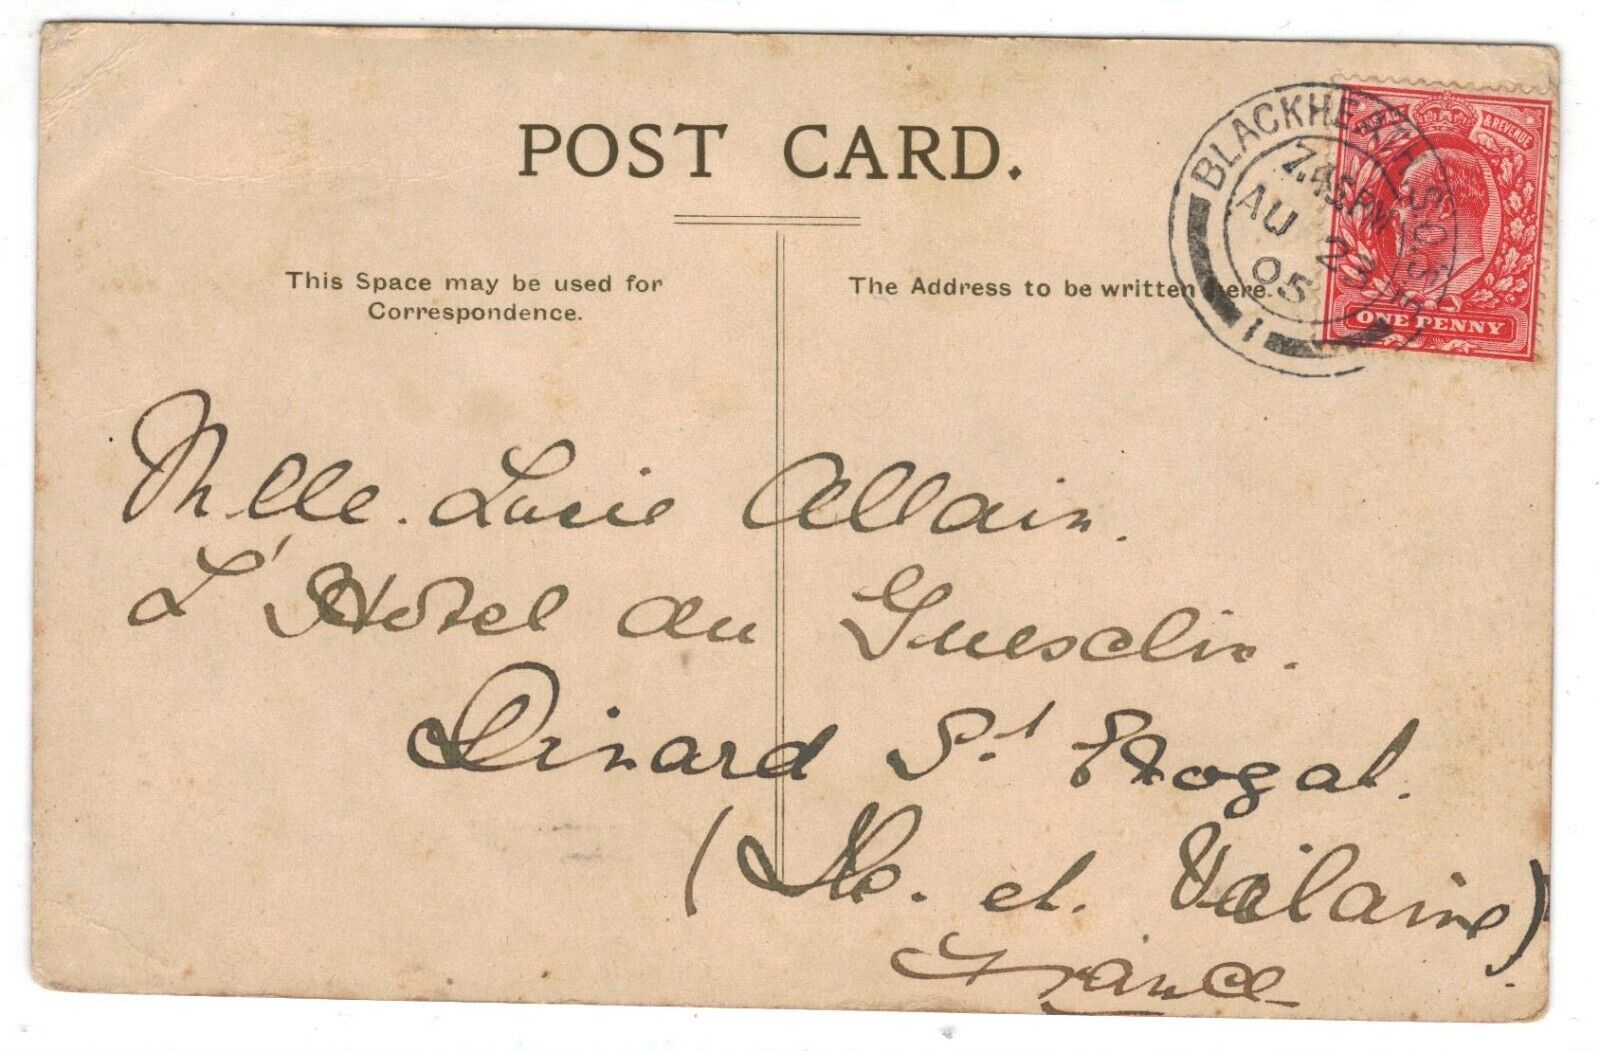 POST CARD.
This Space may be used for
Correspondence.
The Address to be written here.
BLACKHEATH S.O. S.E.
7.45PM
AU 23
05
1
& REVENUE
ONE PENNY
Mlle. Lucie Allain.
L'Hotel du Guesclin.
Dinard St Enogat.
(Ile. et. Vilaine)
France